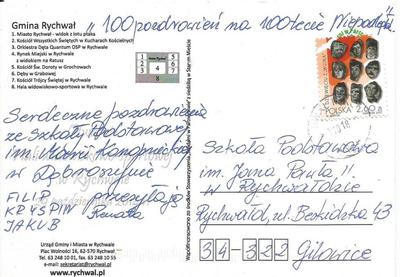 Gmina Rychwał
1. Miasto Rychwał - widok z lotu ptaka
2. Kościół Wszystkich Świętych w Kucharach Kościelnych
3. Orkiestra Dęta Quantum OSP w Rychwale
4. Rynek Miejski w Rychwale
z widokiem na Ratusz
5. Kościół Św. Doroty w Grochowach
6. Dęby w Grabowej
7. Kościół Trójcy Świętej w Rychwale
8. Hala widowiskowo-sportowa w Rychwale
"100 pozdrowień na 100lecie Niepodległej"
1 2 3
4
5 6 7
8
POLSKA 2,60 zł
Serdeczne pozdrowienia
ze Szkoły Podstawowej
im. Marii Konopnickiej
w Dąbroszynie
przesyłają
FILIP
KRYSPIN Renata
JAKUB
Szkoła Podstawowa
im. Jana Pawła II
w Rychwałdzie
Rychwałd, ul. Beskidzka 43
34-322 Gilowice
Urząd Gminy i Miasta w Rychwale
Plac Wolności 16, 62-570 Rychwał
Tel. 63 248 10 01, fax 63 248 10 55
e-mail: sekretariat@rychwal.pl
www.rychwal.pl